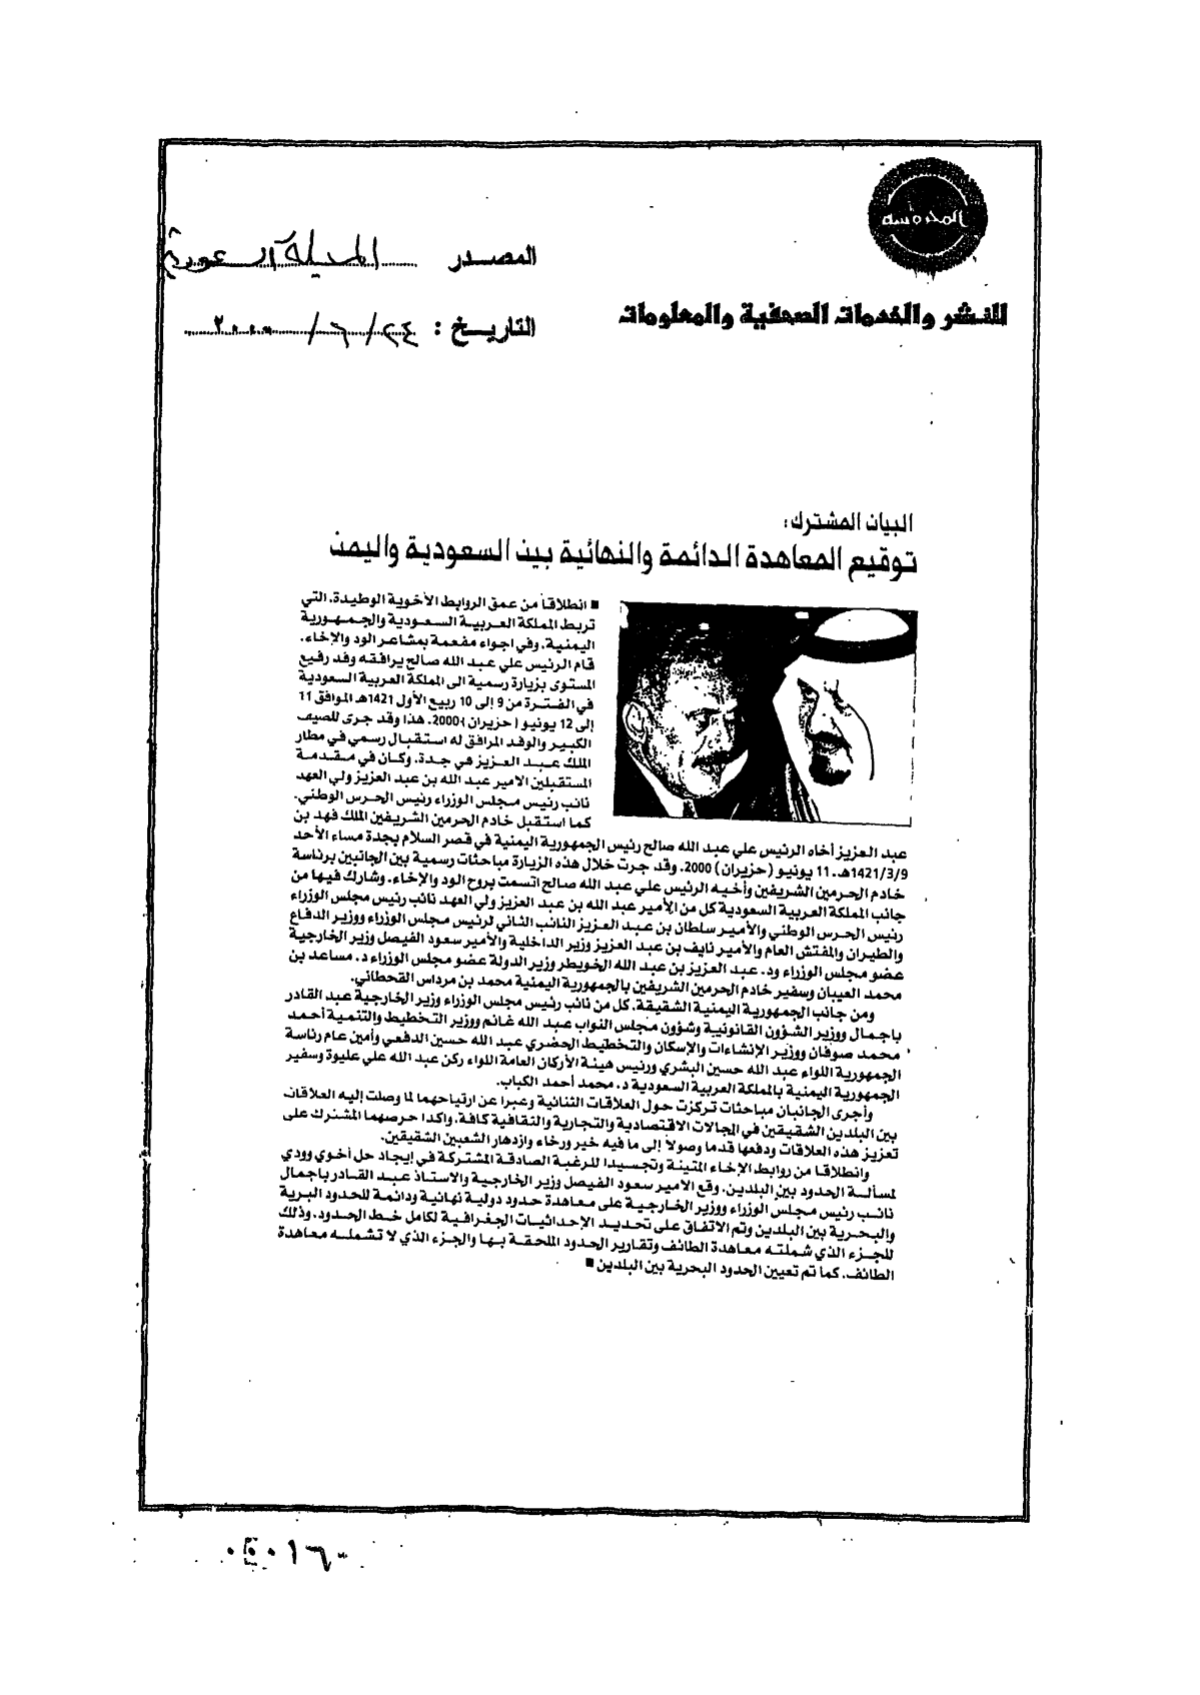 المحروسة
للنشر والخدمات الصحفية والمعلومات
المصدر المجلة السعودية
التاريخ : ٢٤/٦/٢٠٠٠
البيان المشترك:
توقيع المعاهدة الدائمة والنهائية بين السعودية واليمن
■ انطلاقاً من عمق الروابط الأخوية الوطيدة، التي
تربط المملكة العربية السعودية والجمهورية
اليمنية، وفي اجواء مفعمة بمشاعر الود والإخاء،
قام الرئيس علي عبد الله صالح يرافقه وفد رفيع
المستوى بزيارة رسمية الى المملكة العربية السعودية
في الفترة من 9 إلى 10 ربيع الأول 1421هـ الموافق 11
إلى 12 يونيو (حزيران) 2000. هذا وقد جرى للضيف
الكبير والوفد المرافق له استقبال رسمي في مطار
الملك عبد العزيز في جدة، وكان في مقدمة
المستقبلين الامير عبد الله بن عبد العزيز ولي العهد
نائب رئيس مجلس الوزراء رئيس الحرس الوطني.
كما استقبل خادم الحرمين الشريفين الملك فهد بن
عبد العزيز أخاه الرئيس علي عبد الله صالح رئيس الجمهورية اليمنية في قصر السلام بجدة مساء الأحد
1421/3/9هـ، 11 يونيو (حزيران) 2000. وقد جرت خلال هذه الزيارة مباحثات رسمية بين الجانبين برئاسة
خادم الحرمين الشريفين وأخيه الرئيس علي عبد الله صالح اتسمت بروح الود والإخاء، وشارك فيها من
جانب المملكة العربية السعودية كل من الأمير عبد الله بن عبد العزيز ولي العهد نائب رئيس مجلس الوزراء
رئيس الحرس الوطني والأمير سلطان بن عبد العزيز النائب الثاني لرئيس مجلس الوزراء ووزير الدفاع
والطيران والمفتش العام والأمير نايف بن عبد العزيز وزير الداخلية والأمير سعود الفيصل وزير الخارجية
عضو مجلس الوزراء ود. عبد العزيز بن عبد الله الخويطر وزير الدولة عضو مجلس الوزراء د. مساعد بن
محمد العيبان وسفير خادم الحرمين الشريفين بالجمهورية اليمنية محمد بن مرداس القحطاني.
ومن جانب الجمهورية اليمنية الشقيقة، كل من نائب رئيس مجلس الوزراء وزير الخارجية عبد القادر
باجمال ووزير الشؤون القانونية وشؤون مجلس النواب عبد الله غانم ووزير التخطيط والتنمية أحمد
محمد صوفان ووزير الإنشاءات والإسكان والتخطيط الحضري عبد الله حسين الدفعي وأمين عام رئاسة
الجمهورية اللواء عبد الله حسين البشري ورئيس هيئة الأركان العامة اللواء ركن عبد الله علي عليوة وسفير
الجمهورية اليمنية بالمملكة العربية السعودية د. محمد أحمد الكباب.
وأجرى الجانبان مباحثات تركزت حول العلاقات الثنائية وعبرا عن ارتياحهما لما وصلت إليه العلاقات
بين البلدين الشقيقين في المجالات الاقتصادية والتجارية والثقافية كافة، واكدا حرصهما المشترك على
تعزيز هذه العلاقات ودفعها قدما وصولاً إلى ما فيه خير ورخاء وازدهار الشعبين الشقيقين.
وانطلاقا من روابط الإخاء المتينة وتجسيدا للرغبة الصادقة المشتركة في إيجاد حل أخوي وودي
لمسألة الحدود بين البلدين، وقع الامير سعود الفيصل وزير الخارجية والاستاذ عبد القادر باجمال
نائب رئيس مجلس الوزراء ووزير الخارجية على معاهدة حدود دولية نهائية ودائمة للحدود البرية
والبحرية بين البلدين وتم الاتفاق على تحديد الإحداثيات الجغرافية لكامل خط الحدود، وذلك
للجزء الذي شملته معاهدة الطائف وتقارير الحدود الملحقة بها والجزء الذي لا تشمله معاهدة
الطائف، كما تم تعيين الحدود البحرية بين البلدين ■